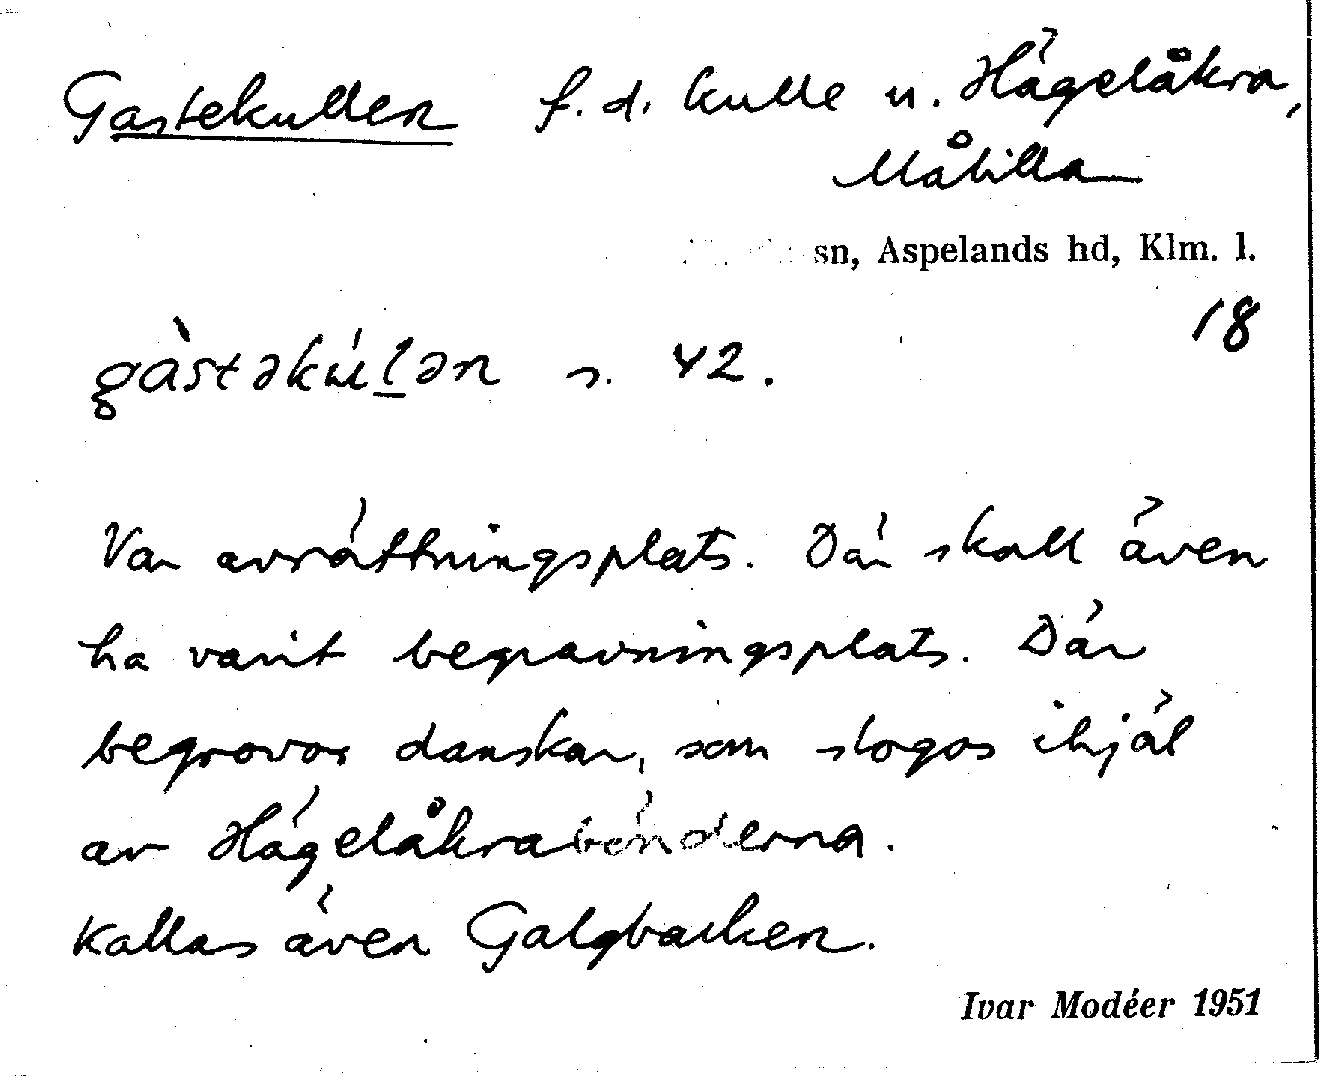 Gastekullen f.d. kulle u. Hägelåkra,
Målilla
sn, Aspelands hd, Klm. l.
18
gàstəkúl̲ən s. 42.
Var avrättningsplats. Där skall även
ha varit begravningsplats. Där
begrovos danskar, som slogos ihjäl
av Hägelåkrabönderna.
Kallas även Galgbacken.
Ivar Modéer 1951